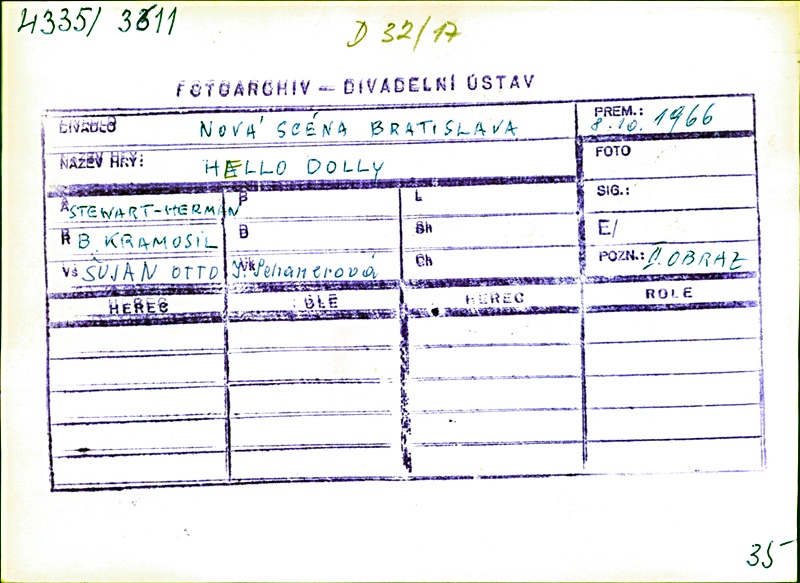 4335/ 3611
D 32/17
FOTOARCHIV — DIVADELNÍ ÚSTAV
DIVADLO NOVÁ SCÉNA BRATISLAVA
PREM.: 8.10. 1966
NÁZEV HRY: HELLO DOLLY
FOTO
A STEWART-HERMAN P L
SIG.:
R B. KRAMOSIL D Sh
E/
Vš ŠUJAN OTTO Vk Ch
POZN.: II. OBRAZ
HEREC ROLE HEREC ROLE
35